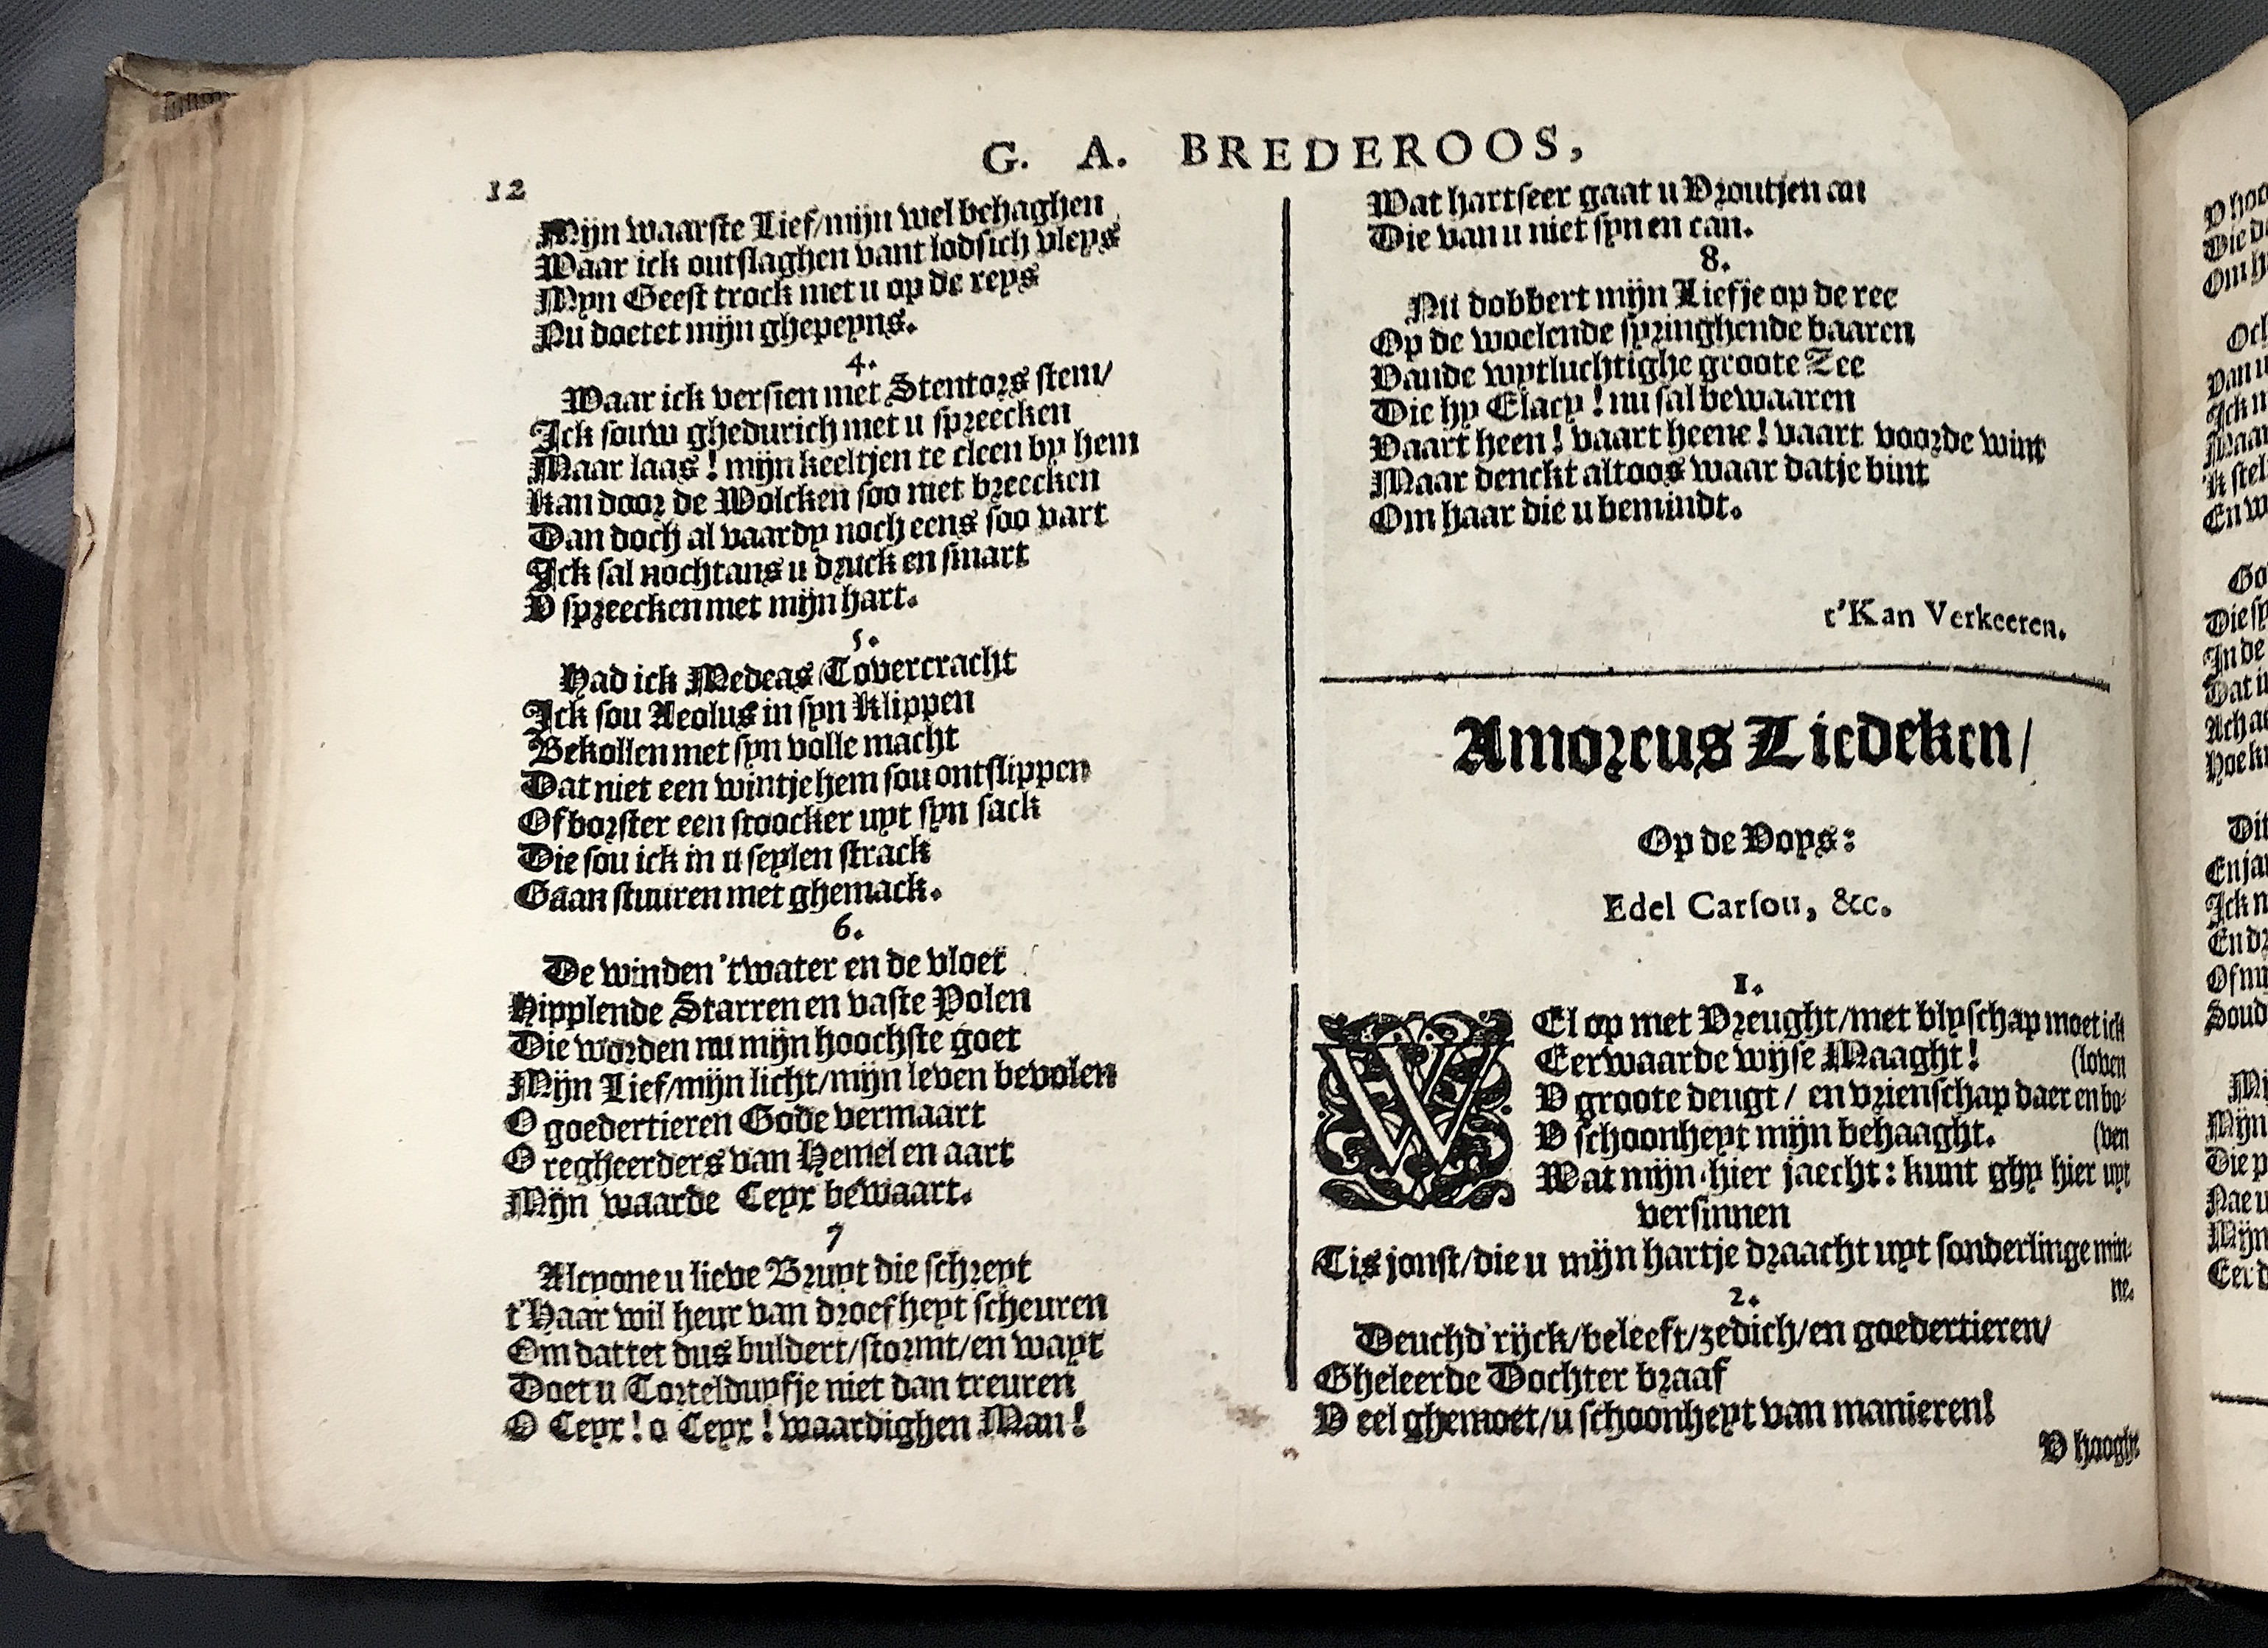 G. A. BREDEROOS,
12
Mijn waarste Lief/mijn wel behaghen
Waar ick outslaghen vant lodsich vleys
Myn Geest trock met u op de reys
Nu doetet mijn ghepeyns.
4.
Waar ick versien met Stentors stem/
Ick souw ghedurich met u spreecken
Maar laas! mijn keeltjen te cleen by hem
Kan door de Wolcken soo niet breecken
Dan doch al vaardy noch eens soo vart
Ick sal nochtans u druck en smart
V spreecken met mijn hart.
5.
Had ick Medeas Tovercracht
Ick sou Aeolus in syn Klippen
Bekollen met syn volle macht
Dat niet een wintje hem sou ontslippen
Of borster een stoocker uyt syn sack
Die sou ick in u seylen strack
Gaan stuuren met ghemack.
6.
De winden 'twater en de vloet
Hipplende Starren en vaste Polen
Die worden nu mijn hoochste goet
Mijn Lief/mijn licht/mijn leven bevolen
O goedertieren Gode vermaart
O regheerders van Hemel en aart
Mijn waarde Ceyx bewaart.
7
Alcyone u lieve Bruyt die schreyt
t'Haar wil heur van droefheyt scheuren
Om dattet dus buldert/stormt/en wayt
Doet u Tortelduyfje niet dan treuren
O Ceyx! o Ceyx! waardighen Man!
Wat hartseer gaat u Vroutjen an
Die van u niet syn en can.
8.
Nu dobbert mijn Liefje op de ree
Op de woelende springhende baaren
Vande wytluchtighe groote Zee
Die hy Elacy! nu sal bewaaren
Vaart heen! vaart heene! vaart voorde wint
Maar denckt altoos waar datje bint
Om haar die u bemindt.
t'Kan Verkeeren.
Amoreus Liedeken/
Op de Voys:
Edel Carsou, &c.
1.
WEl op met Vreught/met blyschap moet ick
Eerwaarde wijse Maaght! (loven
V groote deugt/ en vrienschap daer en bo-
V schoonheyt mijn behaaght. (ven
Wat mijn hier jaecht: kunt ghy hier uyt
versinnen
Tis jonst/die u mijn hartje draacht uyt sonderlinge min-
ne.
2.
Deuchd'rijck/beleeft/zedich/en goedertieren/
Gheleerde Dochter braaf
V eel ghemoet/u schoonheyt van manieren!
V hoogh